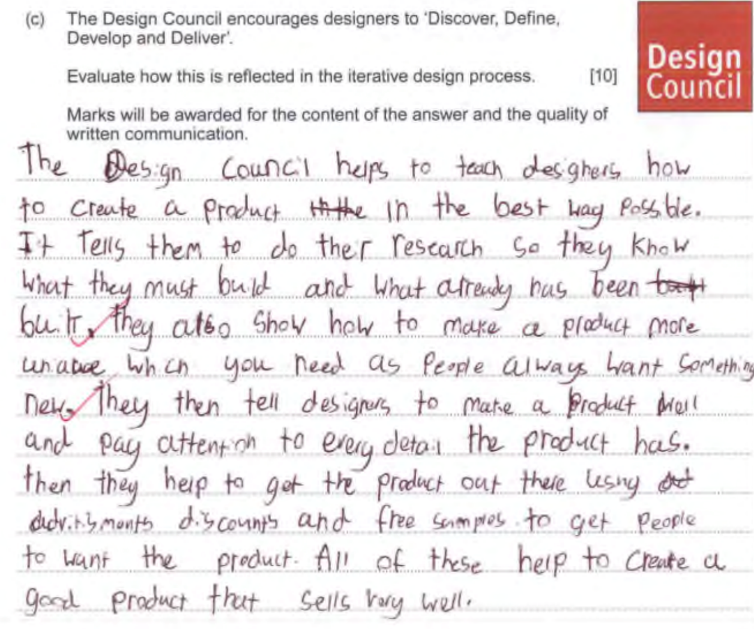 (c) The Design Council encourages designers to 'Discover, Define,
Develop and Deliver'.
Evaluate how this is reflected in the iterative design process. [10]
Marks will be awarded for the content of the answer and the quality of
written communication.
Design
Council
The Design Council helps to teach designers how
to create a product in the best way Possble.
It Tells them to do ther research so they know
What they must build and what already has been
built, they also show how to make a product more
which you need as People always want something
new. They then tell designers to make a Product well
and pay attention to every detail the product has.
then they help to get the product out there using
discounts and free samples to get People
to want the product. All of these help to create a
good product that sells very well.